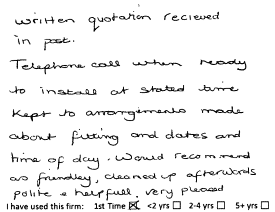 written quotation recieved
in post.
Telephone call when ready
to install at stated time
Kept to arrangements made
about fitting and dates and
time of day. Would recommend
as friendley, cleaned up afterwards
polite & helpfull. very pleased
I have used this firm: 1st Time ☒ <2 yrs ☐ 2-4 yrs ☐ 5+ yrs ☐